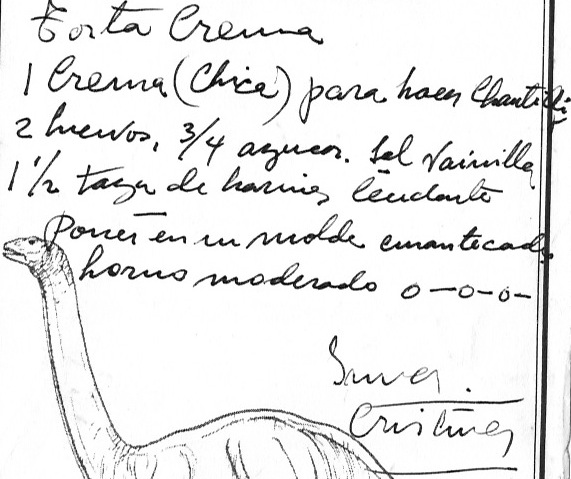 Torta Crema
1 Crema (Chica) para hacer Chantilli
2 huevos, 3/4 azucar. Sal Vainilla
1 1/2 taza de harina leudante
Poner en un molde enmantecado
horno moderado o-o-o-
Cristina